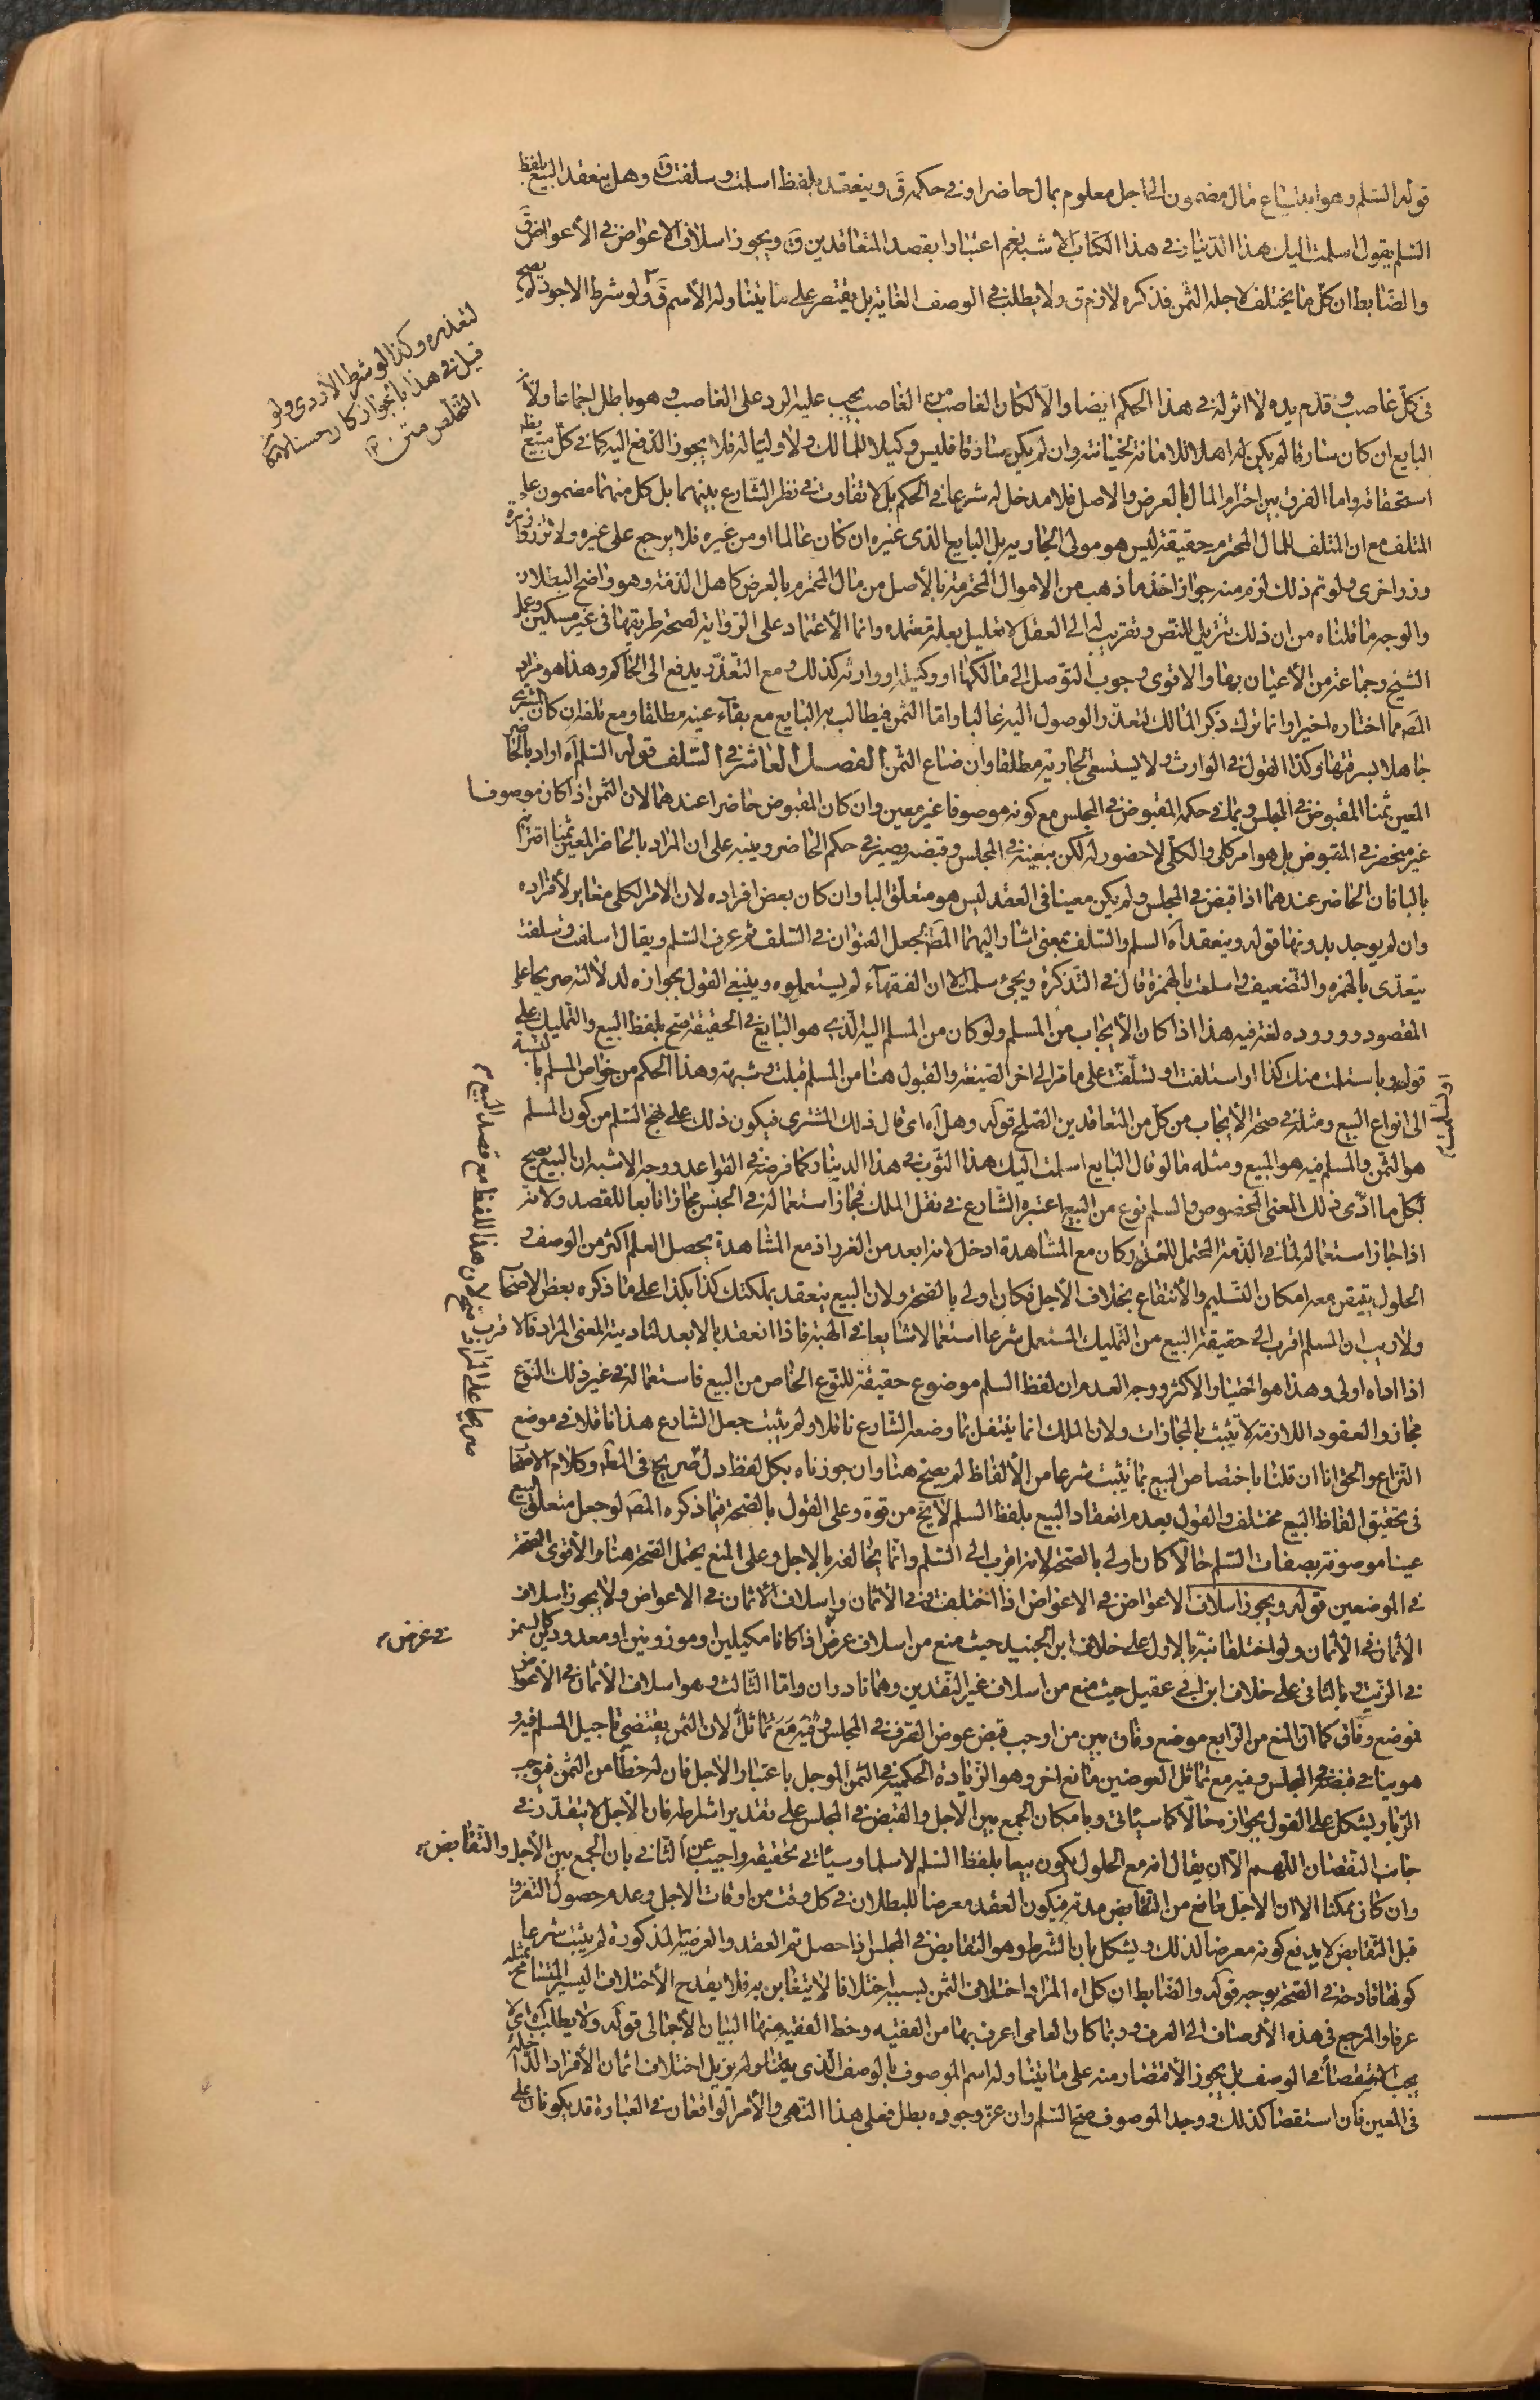 قوله السّلم وهو ابتياع مال مضمون الى اجل معلوم بمال حاضر او فى حكمه قَ وينعقد بلفظ اسلمت وسلفت قَ وهل ينعقد البيع بلفظ
السّلم يقول اسلمت اليك هذا الدّينار فى هذا الكتاب الاشبه نعم اعتبارا بقصد المتعاقدين قَ ويجوز اسلاف الاعواض فى الأعواض قَ
والضّابط ان كلّ ما يختلف لاجله الثّمن فذكره لازم ق ولا يطلب فى الوصف الغاية بل يقتصر على ما يتناوله الأسم قَ ولو شرط الاجود لم يصح
لتعذره وكذا لو شرط الأردى ولو
قيل فى هذا بالجواز كان حسنا لامكان
التّخلّص متن
فى كلّ غاصب وقدم يده لا اثر له فى هذا الحكم ايضا والّا لكان الغاصب من الغاصب يجب عليه الرد على الغاصب وهو باطل اجماعا ولأنّ
البايع ان كان سارقا لم يكن له اهلا للامانة لخيانته وان لم يكن سارقا فليس وكيلا للمالك ولا وليّا له فلا يجوز الدّفع اليه كما فى كلّ مبيع يظهر
استحقاقه واما الفرق بين احترام المال بالعرض والاصل فلا مدخل له شرعا فى الحكم بل لا تفاوت فى نظر الشّارع بينهما بل كل منهما مضمون على
المتلف مع ان المتلف للمال المحترم حقيقة ليس هو مولى الجارية بل البايع الذى غيره ان كان عالما او من غيره فلا يرجع على غيره ولا تزر وازرة
وزر اخرى ولو تم ذلك لزم منه جواز اخذ ما ذهب من الاموال المحترمة بالأصل من مال المحترم بالعرض كاهل الذمّة وهو واضح البطلان
والوجه ما قلناه من ان ذلك تنزيل للنّص وتقريب له الى العقل لا تعليل بعلّة معتمده وانما الأعتماد على الرّواية لصحة طريقها فى غير مسكين وعمل
الشّيخ وجماعة من الأعيان بها والاقوى وجوب التوّصل الى مالكها او وكيله او وارثه كذلك ومع التّعذّر يدفع الى الحاكم وهذا هو مراد
المصَ مما اختاره اخيرا وانما ترك ذكر المالك لتعذّر الوصول اليه غالبا وامّا الثّمن فيطالب به البايع مع بقاء عينه مطلقا ومع تلفه ان كان المشترى
جاهلا بسرقتها وكذا القول فى الوارث ولا يستسعى الجارية مطلقا وان ضاع الثّمن الفصل العاشر فى السّلف قوله السّلم آه اراد بالحاضر
المعين ثمنا المقبوض فى المجلس وبما فى حكمه المقبوض فى المجلس مع كونه موصوفا غير معين وان كان المقبوض حاضرا عندهما لان الثّمن اذا كان موصوفا
غير منحصر فى المقبوض بل هو امر كلى والكلّى لا حضور له لكن بتعيينه فى المجلس وقبضه يصير فى حكم الحاضر وينبه على ان المراد بالحاضر المعين ثمنا اقترانه
بالبا فان الحاضر عندهما اذا قبض فى المجلس ولم يكن معينا فى العقد ليس هو متعلّق البا وان كان بعض افراده لان الامر الكلى مغاير لأفراده
وان لم يوجد بدونها قوله وينعقد آه السلم والسّلف بمعنى اشار اليهما المصَ بجعل العنوان فى السّلف ثم عرف السّلم ويقال اسلفت وسلفت
يتعدّى بالهمزه والتّضعيف واسلمت بالهمزة قال فى التّذكرة ويجئ سلمت الا ان الفقهآء لم يستعملوه وينبغى القول بجوازه لدلالته صريحا على
المقصود ووروده لغة فيه هذا اذا كان الأيجاب من المسلم ولو كان من المسلم اليه الّذى هو البايع فى الحقيقة صح بلفظ البيع والتّمليك على
قول وباستلمت منك كذا او استلفت وتسلّفت على ما مرّ الى اخر الصّيغة والقبول هنا من المسلم قبلت وشبهه وهذا الحكم من خواص المسلم بالنسبة
الى انواع البيع ومثله فى صحّة الأيجاب من كلّ من المتعاقدين الصّلح قوله وهل آه اى قال ذلك المشترى فيكون ذلك على نهج السّلم من كون المسلم
هو الثّمن والمسلم فيه هو المبيع ومثله ما لو قال البايع اسلمت اليك هذا الثّوب فى هذا الدينار كما فرضه فى القواعد ووجه الاشبه ان البيع يصح
بكلّ ما ادّى ذلك المعنى المخصوص والسلم نوع من البيع اعتبره الشّارع فى نقل الملك فجاز استعماله فى الجنس مجازا تابعا للقصد ولانه
اذا جاز استعماله لما فى الذّمّة المحتمل للغرر كان مع المشاهدة ادخل لانه ابعد من الغرر اذ مع المشاهدة يحصل العلم اكثر من الوصف و
الحلول يتيقن معه امكان التّسليم والأنتفاع بخلاف الأجل فكان اولى بالصّحة ولان البيع ينعقد بملكتك كذا بكذا على ما ذكره بعض الاصحاب
ولا ريب ان السلم اقرب الى حقيقة البيع من التّمليك المستعمل شرعا استعمالا شايعا فى الهبة فاذا انعقد بالابعد لتاديته المعنى المراد فالاقرب
اذا اداه اولى وهذا هو اختيار الاكثر ووجه العدم ان لفظ السلم موضوع حقيقة للنّوع الخاص من البيع فاستعماله فى غير ذلك النّوع
مجاز والعقود اللازمة لا تثبت بالمجازات ولان الملك انما ينتقل بما وضعه الشّارع ناقلا ولم يثبت جعل الشّارع هذا ناقلا فى موضع
النّزاع والحق انا ان قلنا باختصاص البيع بما يثبت شرعا من الألفاظ لم يصح هنا وان جوزناه بكل لفظ دل صريح فى المعنى وكلام الاصحاب
فى تحقيق الفاظ البيع مختلف والقول بعدم انعقاد البيع بلفظ السلم لا يخَ من قوة وعلى القول بالصّحة فيما ذكره المصَ لو جعل متعلّق البيع
عينا موصوفة بصفات السّلم حالّا كان اولى بالصّحة لانه اقرب الى السّلم وانّما يخالفه بالاجل وعلى المنع يحتمل الصّحة هنا والأقوى الصّحة
فى الموضعين قوله ويجوز اسلاف الاعواض فى الاعواض اذا اختلفت وفى الأثمان واسلاف الأثمان فى الاعواض ولا يجوز اسلاف
الأثمان فى الأثمان ولو اختلفا نبّه بالاول على خلاف ابن الجنيد حيث منع من اسلاف عرض اذا كانا مكيلين او موزونين او معدودين كالسمن
فى عرض
فى الزّيت وبالثّانى على خلاف ابن ابى عقيل حيث منع من اسلاف غير النّقدين وهما نادران وامّا الثّالث وهو اسلاف الأثمان فى الأعواض
فموضع وفاق كما ان المنع من الرّابع موضع وفاق بين من اوجب قبض عوض الصّرف فى المجلس وفيه مَعَ تماثل لان الثّمن يقتضى تاجيل المسلم فيه و
هو ينافى قبضه فى المجلس وفيه مع تماثل العوضين مانع اخر وهو الزّيادة الحكمية فى الثّمن الموجل باعتبار الاجل فان له حظّا من الثّمن فيوجب
الرّبا ويشكل على القول بجوازه حالّا كما سيأتى وبامكان الجمع بين الاجل والقبض فى المجلس على تقدير اشتراطه فان الاجل لا يتقدّر فى
جانب النّقصان اللّهم الّا ان يقال انه مع الحلول يكون بيعا بلفظ السّلم لا سلما وسيأتى تحقيقه واجيب عن الثّانى بان الجمع بين الأجل والتّقابض
وان كان ممكنا الا ان الاجل مانع من التّقابض مدته فيكون العقد معرضا للبطلان فى كل وقت من اوقات الاجل وعدم حصول التفرق
قبل التّقابض لا يدفع كونه معرضا لذلك ويشكل بان الشّرط وهو التقابض فى المجلس اذا حصل تم العقد والعرضيّة المذكورة لم يثبت شرعا
كونها قادحة فى الصّحة بوجه قوله والضّابط ان كل اه المراد اختلاف الثمن بسببه اختلافا لا يتغابن به فلا يقدح الأختلاف اليسير المتسامح بمثله
عرفا والمرجع فى هذه الأوصاف الى العرف وربّما كان العامى اعرف بها من الفقيه وحظ الفقيه منها البيان الأجمالى قوله ولا يطلب آه اى لا
يجب الاستقصاء فى الوصف بل يجوز الأقتصار منه على ما يتناوله اسم الموصوف بالوصف الّذى يزيل اختلاف اثمان الأفراد الدّاخلة
فى المعين فان استقصا كذلك ووجد الموصوف صح السّلم وان عزّ وجوده بطل فعلى هذا النّهى والأمر الواقعان فى العبارة قد يكونان على